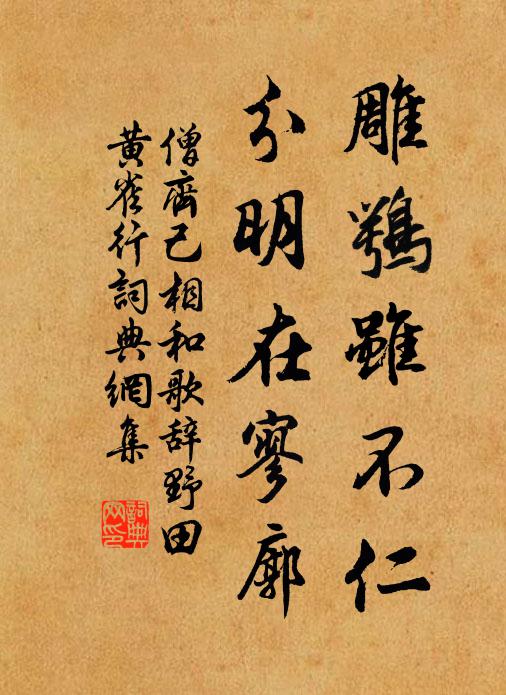 雕鶚雖不仁
分明在寥廓
僧齊己相和歌辞野田
黄雀行詞典網集
詞典
网印